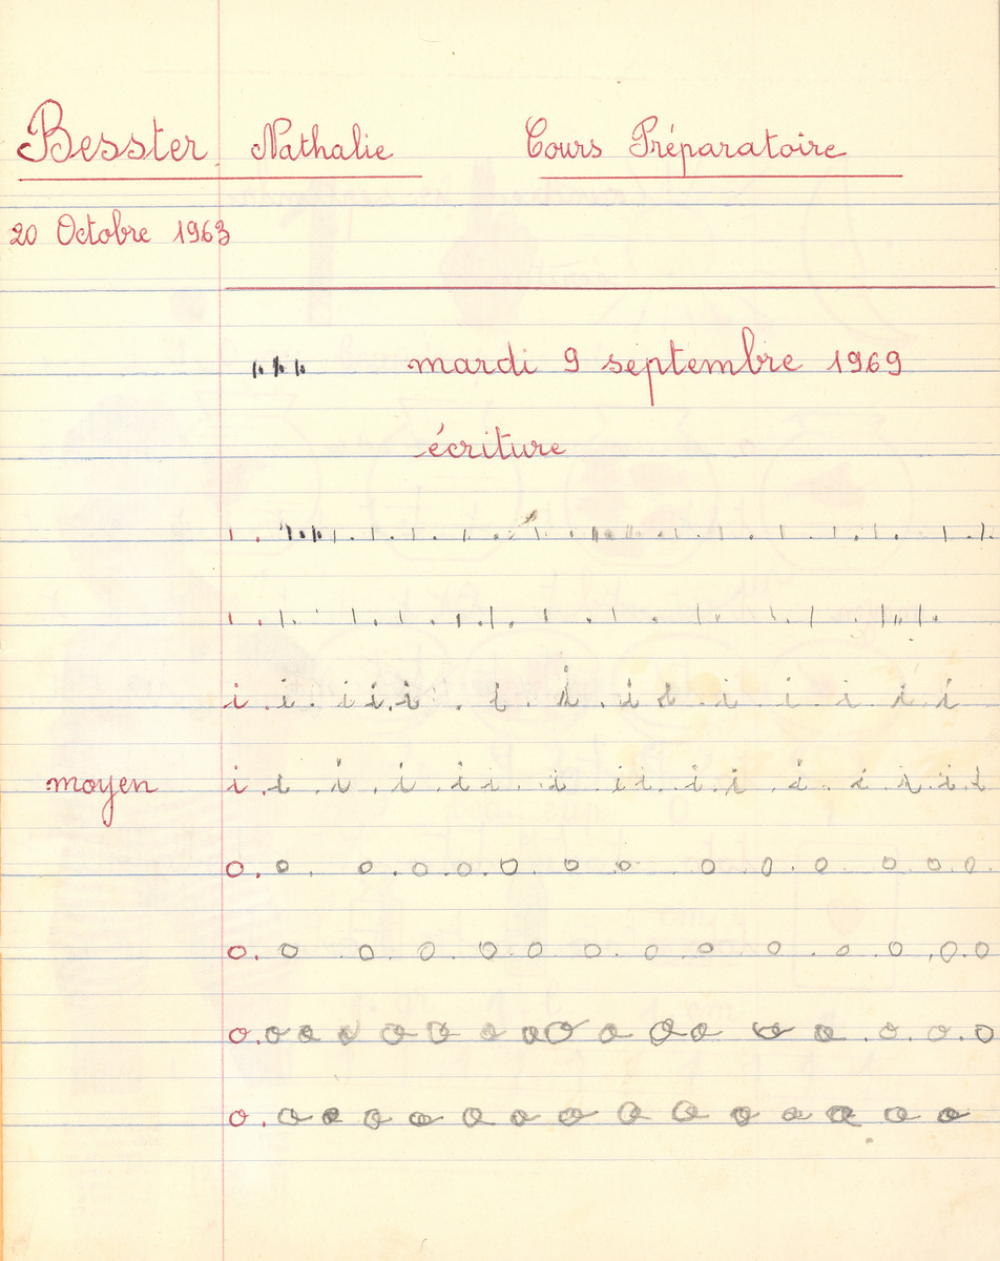 Besster Nathalie Cours Préparatoire
20 Octobre 1963
mardi 9 septembre 1969
écriture
ı . ı . ı . ı . ı . ı . ı . ı . ı . ı . ı . ı .
ı . ı . ı . ı . ı . ı . ı . ı . ı . ı . ı .
i . i . i i i i . i . i . i i . i . i . i . i i
moyen i . i . i . i . i i . i . i i . i . i . i . i . i . i
o . o . o . o . o . o . o o o . o . o o . o . o .
o . o . o . o . o . o o . o . o . o . o . o . o . o
o . o o o o o o o o o o o o o . o . o . o
o . o o o o o o o o o o o o o o